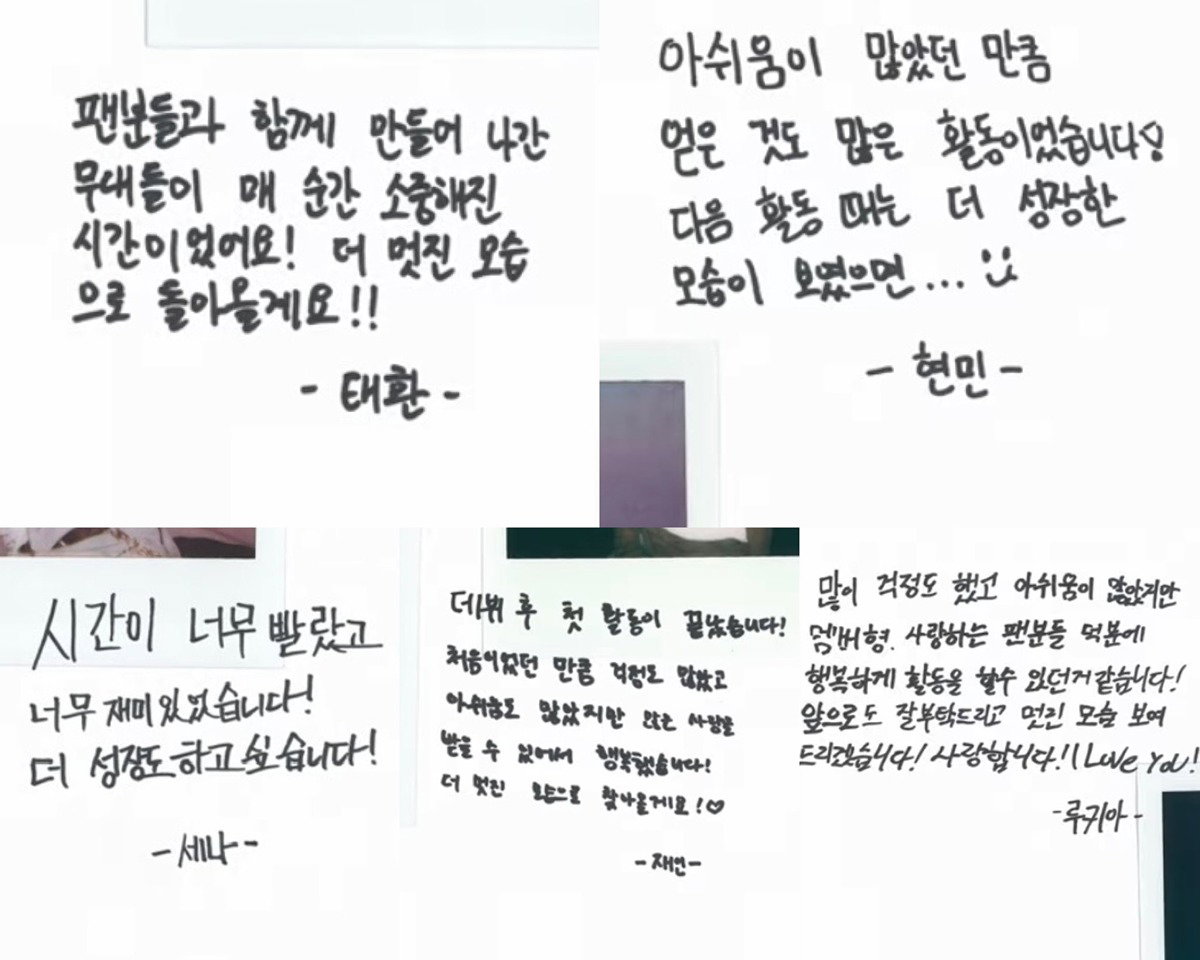 팬분들과 함께 만들어 나간
무대들이 매 순간 소중해진
시간이었어요! 더 멋진 모습
으로 돌아올게요!!
- 태환 -
아쉬움이 많았던 만큼
얻은 것도 많은 활동이었습니다♡
다음 활동 때는 더 성장한
모습이 보였으면...
- 현민 -
시간이 너무 빨랐고
너무 재미있었습니다!
더 성장도하고싶습니다!
- 세나 -
데뷔 후 첫 활동이 끝났습니다!
처음이었던 만큼 걱정도 많았고
아쉬움도 많았지만 많은 사랑을
받을 수 있어서 행복했습니다!
더 멋진 모습으로 찾아올게요!♡
- 재언 -
많이 걱정도 했고 아쉬움이 많았지만
멤버형, 사랑하는 팬분들 덕분에
행복하게 활동을 할수 있던거같습니다!
앞으로도 잘부탁드리고 멋진 모습 보여
드리겠습니다! 사랑합니다! I Love You!
- 루키아 -